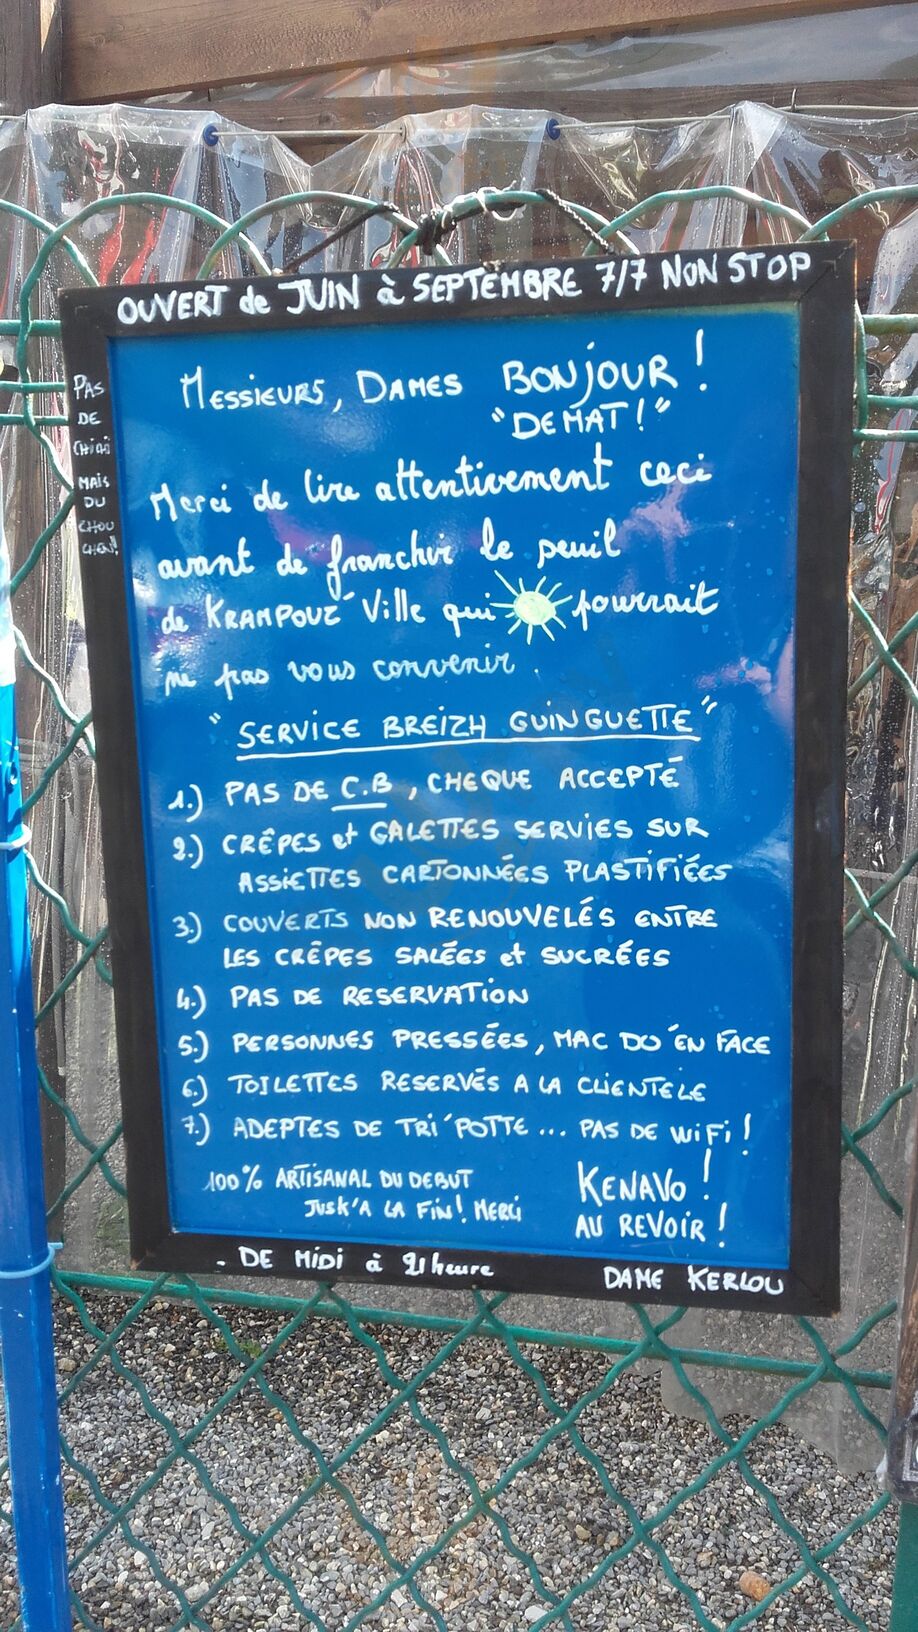 OUVERT de JUIN à SEPTEMBRE 7/7 NON STOP
PAS
DE
CHICHI
MAIS
DU
CHOU
CHEN!
MESSIEURS, DAMES BONJOUR !
"DEMAT!"
Merci de lire attentivement ceci
avant de franchir le seuil
de KRAMPOUZ' Ville qui pourrait
ne pas vous convenir.
"SERVICE BREIZH GUINGUETTE"
1.) PAS DE C.B, CHEQUE ACCEPTÉ
2.) CRÊPES et GALETTES SERVIES SUR
ASSIETTES CARTONNÉES PLASTIFIÉES
3.) COUVERTS NON RENOUVELÉS ENTRE
LES CRÊPES SALÉES et SUCRÉES
4.) PAS DE RESERVATION
5.) PERSONNES PRESSÉES, MAC DO' EN FACE
6.) TOILETTES RESERVÉS A LA CLIENTELE
7.) ADEPTES DE TRI'POTTE... PAS DE WIFI!
100% ARTISANAL DU DEBUT
JUSK'A LA FIN! MERCI
KENAVO !
AU REVOIR !
- DE MIDI à 21heure
DAME KERLOU